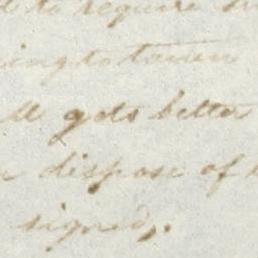 to require
to town
gets better
dispose of
signed,